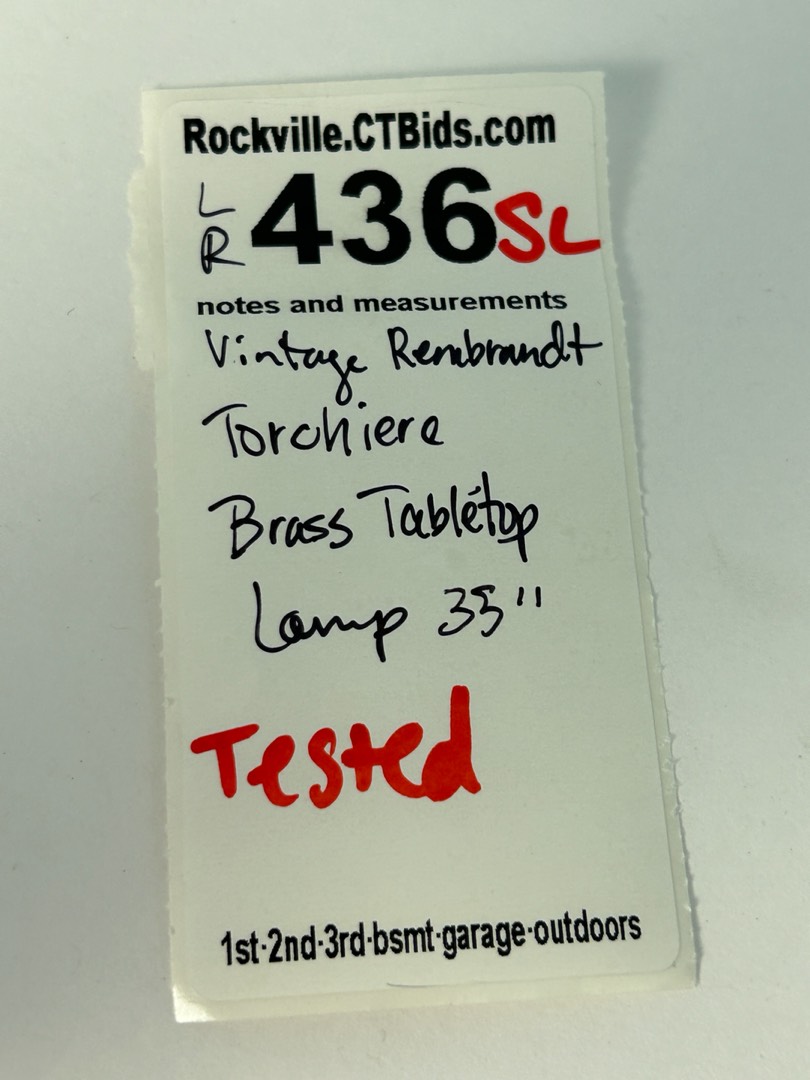 Rockville.CTBids.com
L R 436 SL
notes and measurements
Vintage Rembrandt
Torchiere
Brass Tabletop
Lamp 35"
Tested
1st·2nd·3rd·bsmt·garage·outdoors